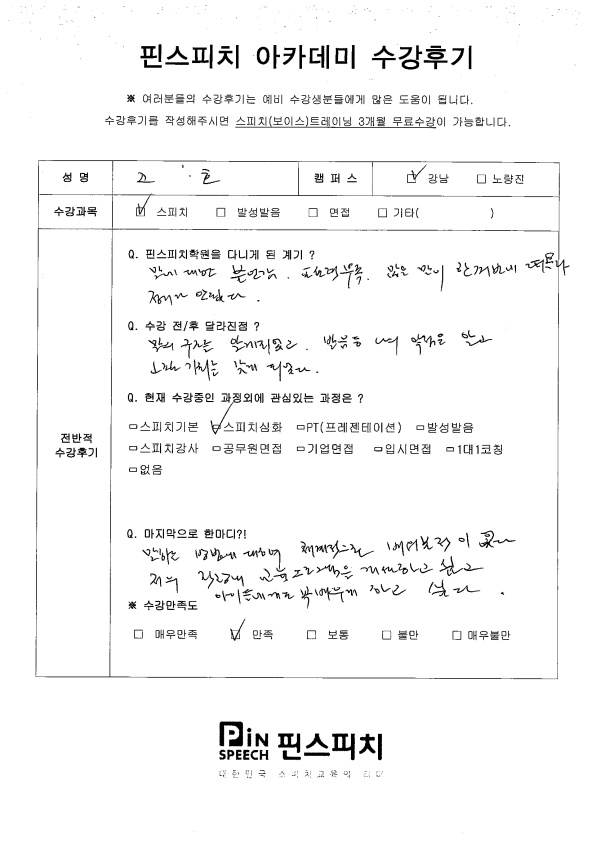 핀스피치 아카데미 수강후기
※ 여러분들의 수강후기는 예비 수강생분들에게 많은 도움이 됩니다.
수강후기를 작성해주시면 스피치(보이스)트레이닝 3개월 무료수강이 가능합니다.
성 명 조 호 캠 퍼 스 ☑ 강남 □ 노량진
수강과목 ☑ 스피치 □ 발성발음 □ 면접 □ 기타( )
전반적
수강후기
Q. 핀스피치학원을 다니게 된 계기 ?
말에 대한 불안감. 표현력부족. 많은 말이 한꺼번에 떠올라
정리가 안된다.
Q. 수강 전/후 달라진점 ?
말의 구조를 알게되었고. 발음등 나의 약점을 알고
Q. 현재 수강중인 과정외에 관심있는 과정은 ?
□스피치기본 ☑스피치심화 □PT(프레젠테이션) □발성발음
□스피치강사 □공무원면접 □기업면접 □입시면접 □1대1코칭
□없음
Q. 마지막으로 한마디?!
말하는 방법에 대하여 체계적으로 배워본적이 없다
교육프로그램을 하고 싶고
아이들에게도 꼭 배우게 하고 싶다.
※ 수강만족도
□ 매우만족 ☑ 만족 □ 보통 □ 불만 □ 매우불만
PiN
SPEECH 핀스피치
대한민국 스피치교육의 리더